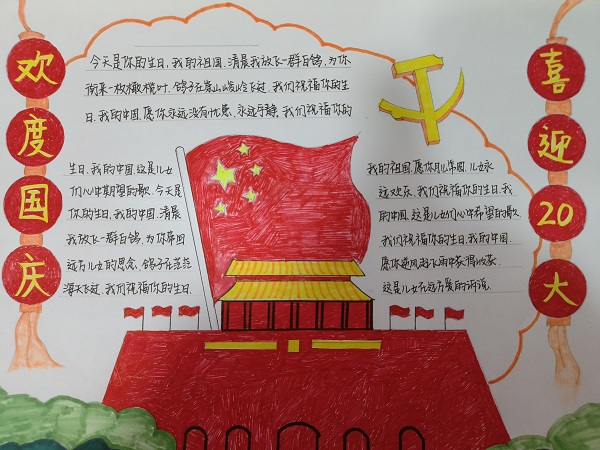 欢度国庆
今天是你的生日，我的祖国，清晨我放飞一群白鸽，为你
衔来一枚橄榄叶，鸽子在崇山峻岭飞过，我们祝福你的生
日，我的中国，愿你永远没有忧患，永远宁静，我们祝福你的
生日，我的中国，这是儿女
们心中期望的歌，今天是
你的生日，我的中国，清晨
我放飞一群白鸽，为你带回
远方儿女的思念，鸽子在茫茫
海天飞过，我们祝福你的生日
我的祖国，愿你月儿常圆，儿女永
远欢乐，我们祝福你的生日，我
的中国，这是儿女们心中希望的歌
我们祝福你的生日，我的中国，
愿你逆风起飞雨中获得收获
这是儿女在远方爱的诉说
喜迎20大